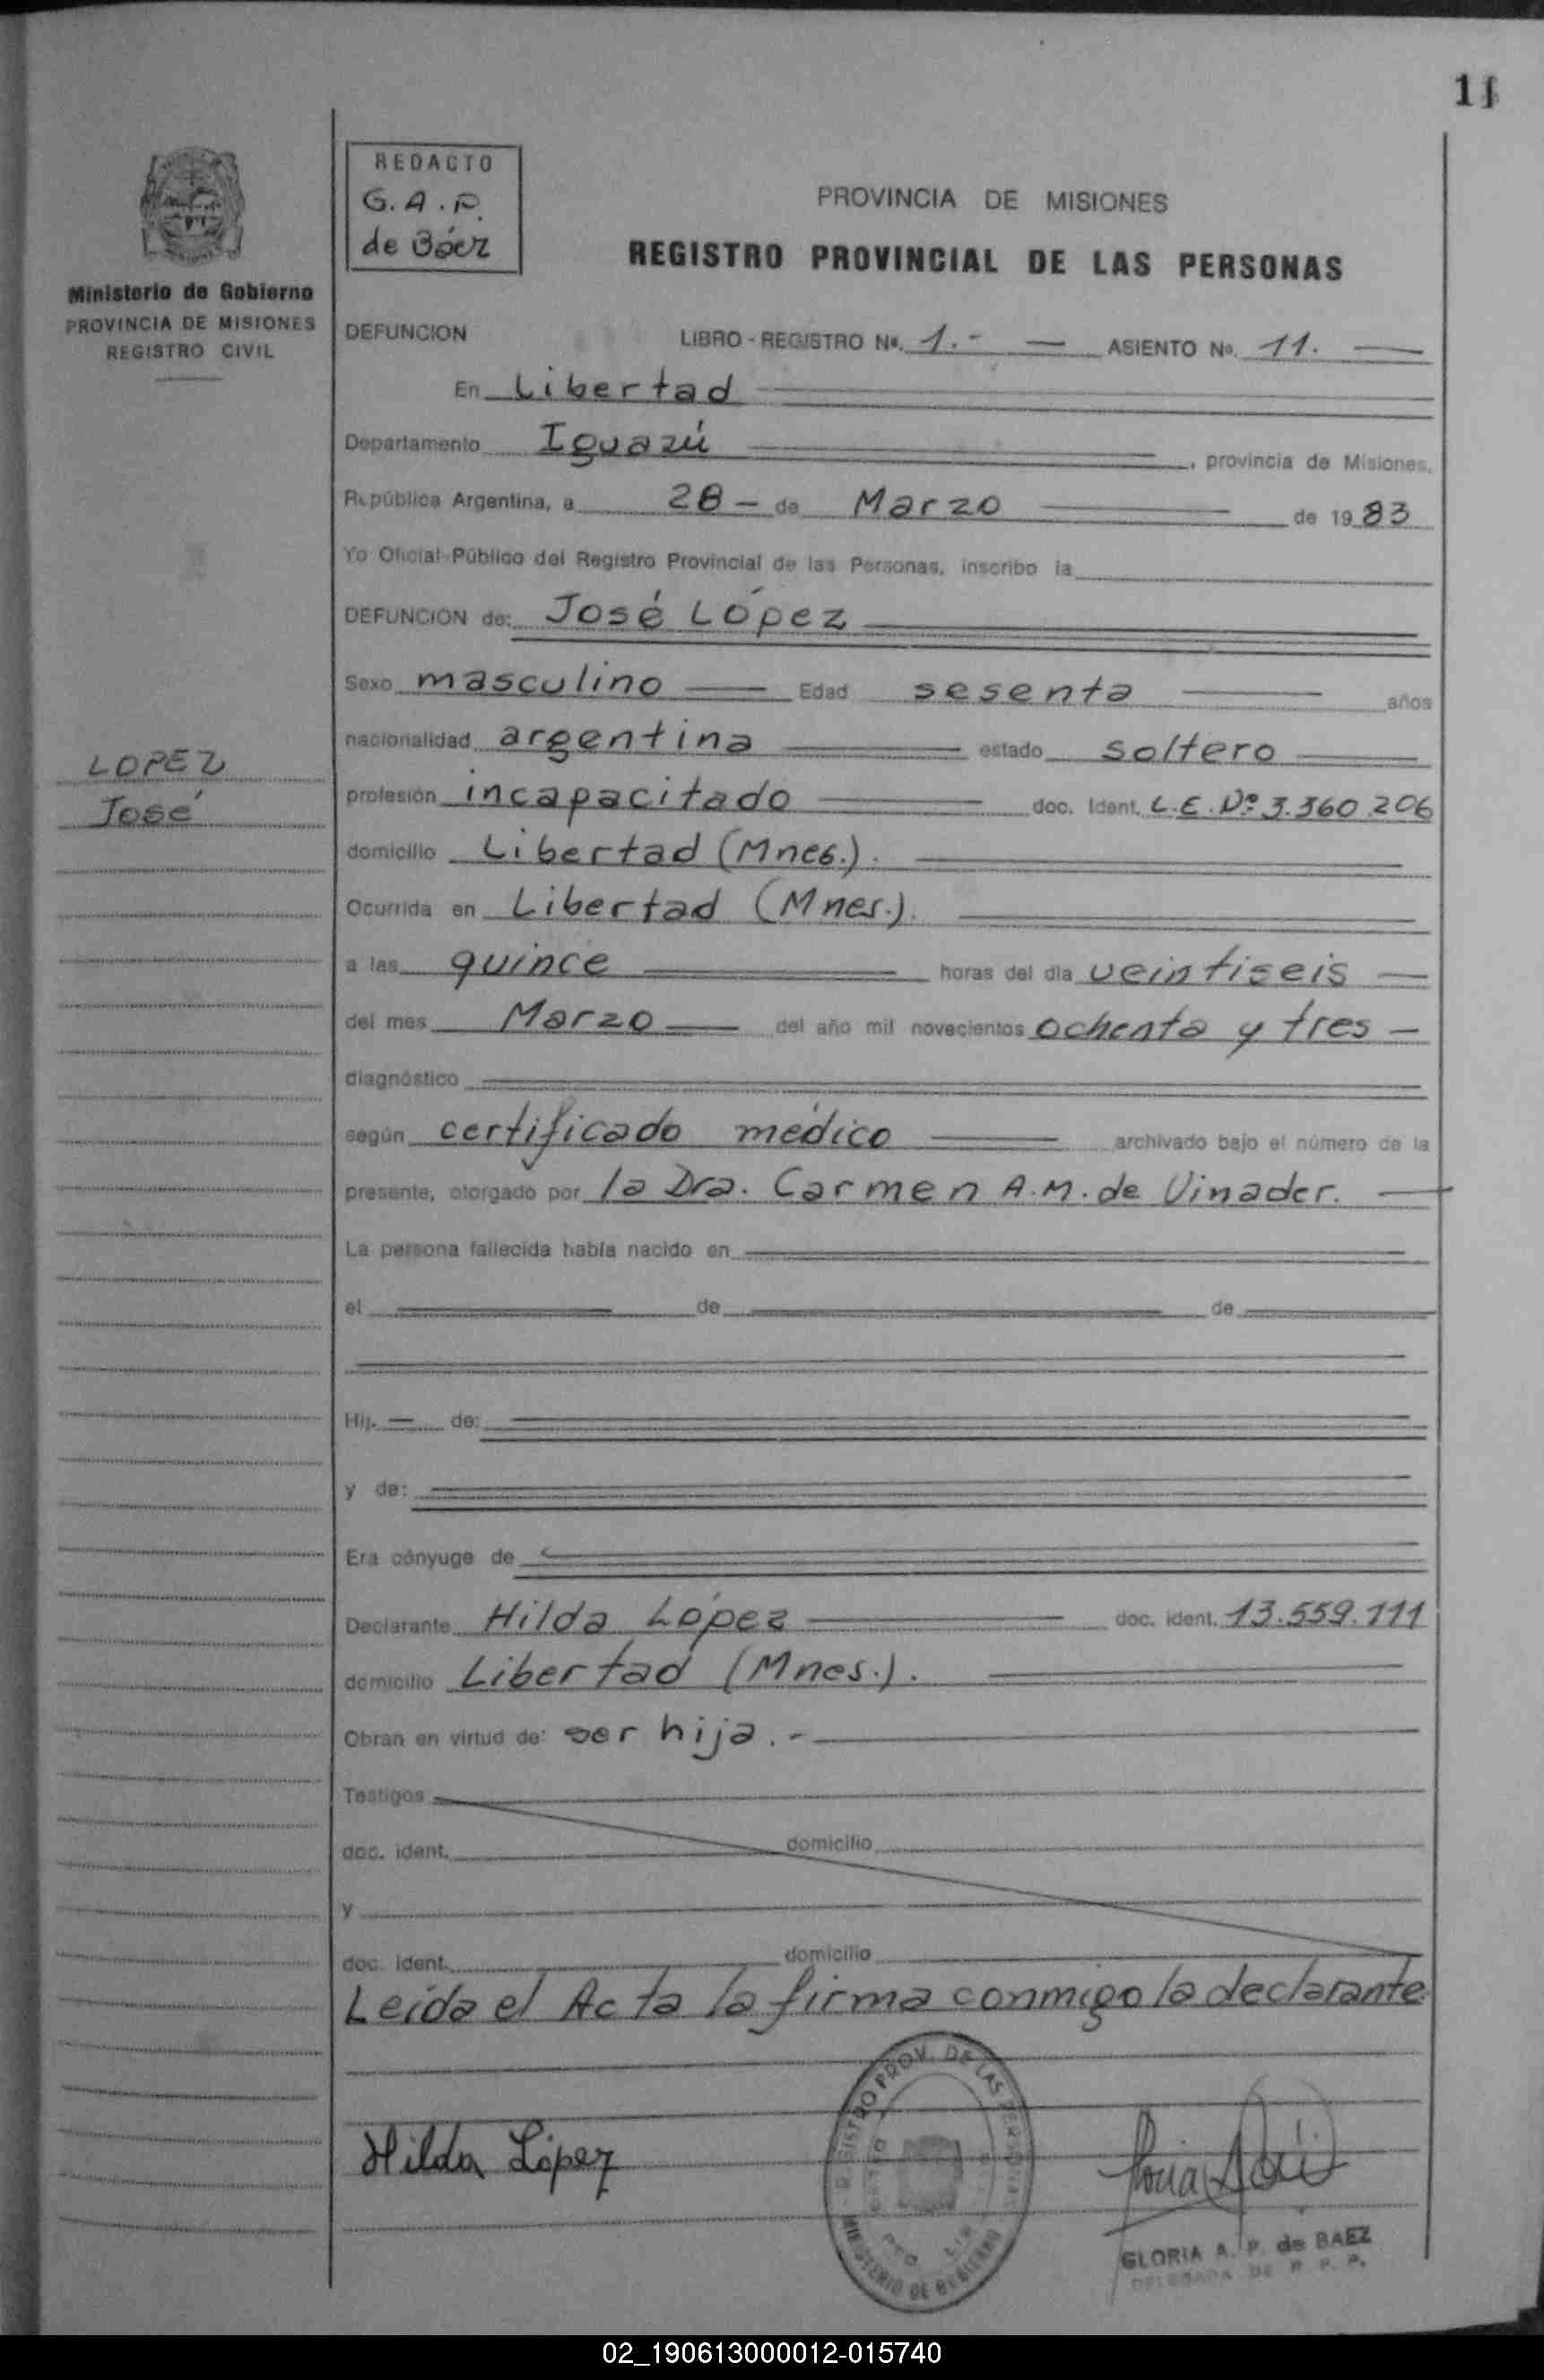 11
REDACTO
G. A. P.
de Báez
PROVINCIA DE MISIONES
REGISTRO PROVINCIAL DE LAS PERSONAS
Ministerio de Gobierno
PROVINCIA DE MISIONES
REGISTRO CIVIL
DEFUNCION LIBRO - REGISTRO Nº. 1.- — ASIENTO Nº. 11. —
En Libertad
Departamento Iguazú , provincia de Misiones,
República Argentina, a 28 - de Marzo de 1983
Yo Oficial Público del Registro Provincial de las Personas, inscribo la
DEFUNCION de: José López
Sexo masculino Edad sesenta años
nacionalidad argentina estado soltero
LOPEZ
José
profesión incapacitado doc. Ident. L.E. Nº 3.360.206
domicilio Libertad (Mnes.).
Ocurrida en Libertad (Mnes.).
a las quince horas del día veintiseis
del mes Marzo del año mil novecientos ochenta y tres
diagnóstico
según certificado médico archivado bajo el número de la
presente, otorgado por la Dra. Carmen A.M. de Vinader.
La persona fallecida había nacido en
el de de
Hij. — de:
y de:
Era cónyuge de
Declarante Hilda López doc. ident. 13.559.111
domicilio Libertad (Mnes.).
Obran en virtud de: ser hija.-
Testigos
doc. ident. domicilio
y
doc. ident. domicilio
Leída el Acta la firma conmigo la declarante
Hilda López
REGISTRO PROV. DE LAS PERSONAS
MINISTERIO DE GOBIERNO
GLORIA A. P. de BAEZ
DELEGADA DE R. P. P.
02_190613000012-015740